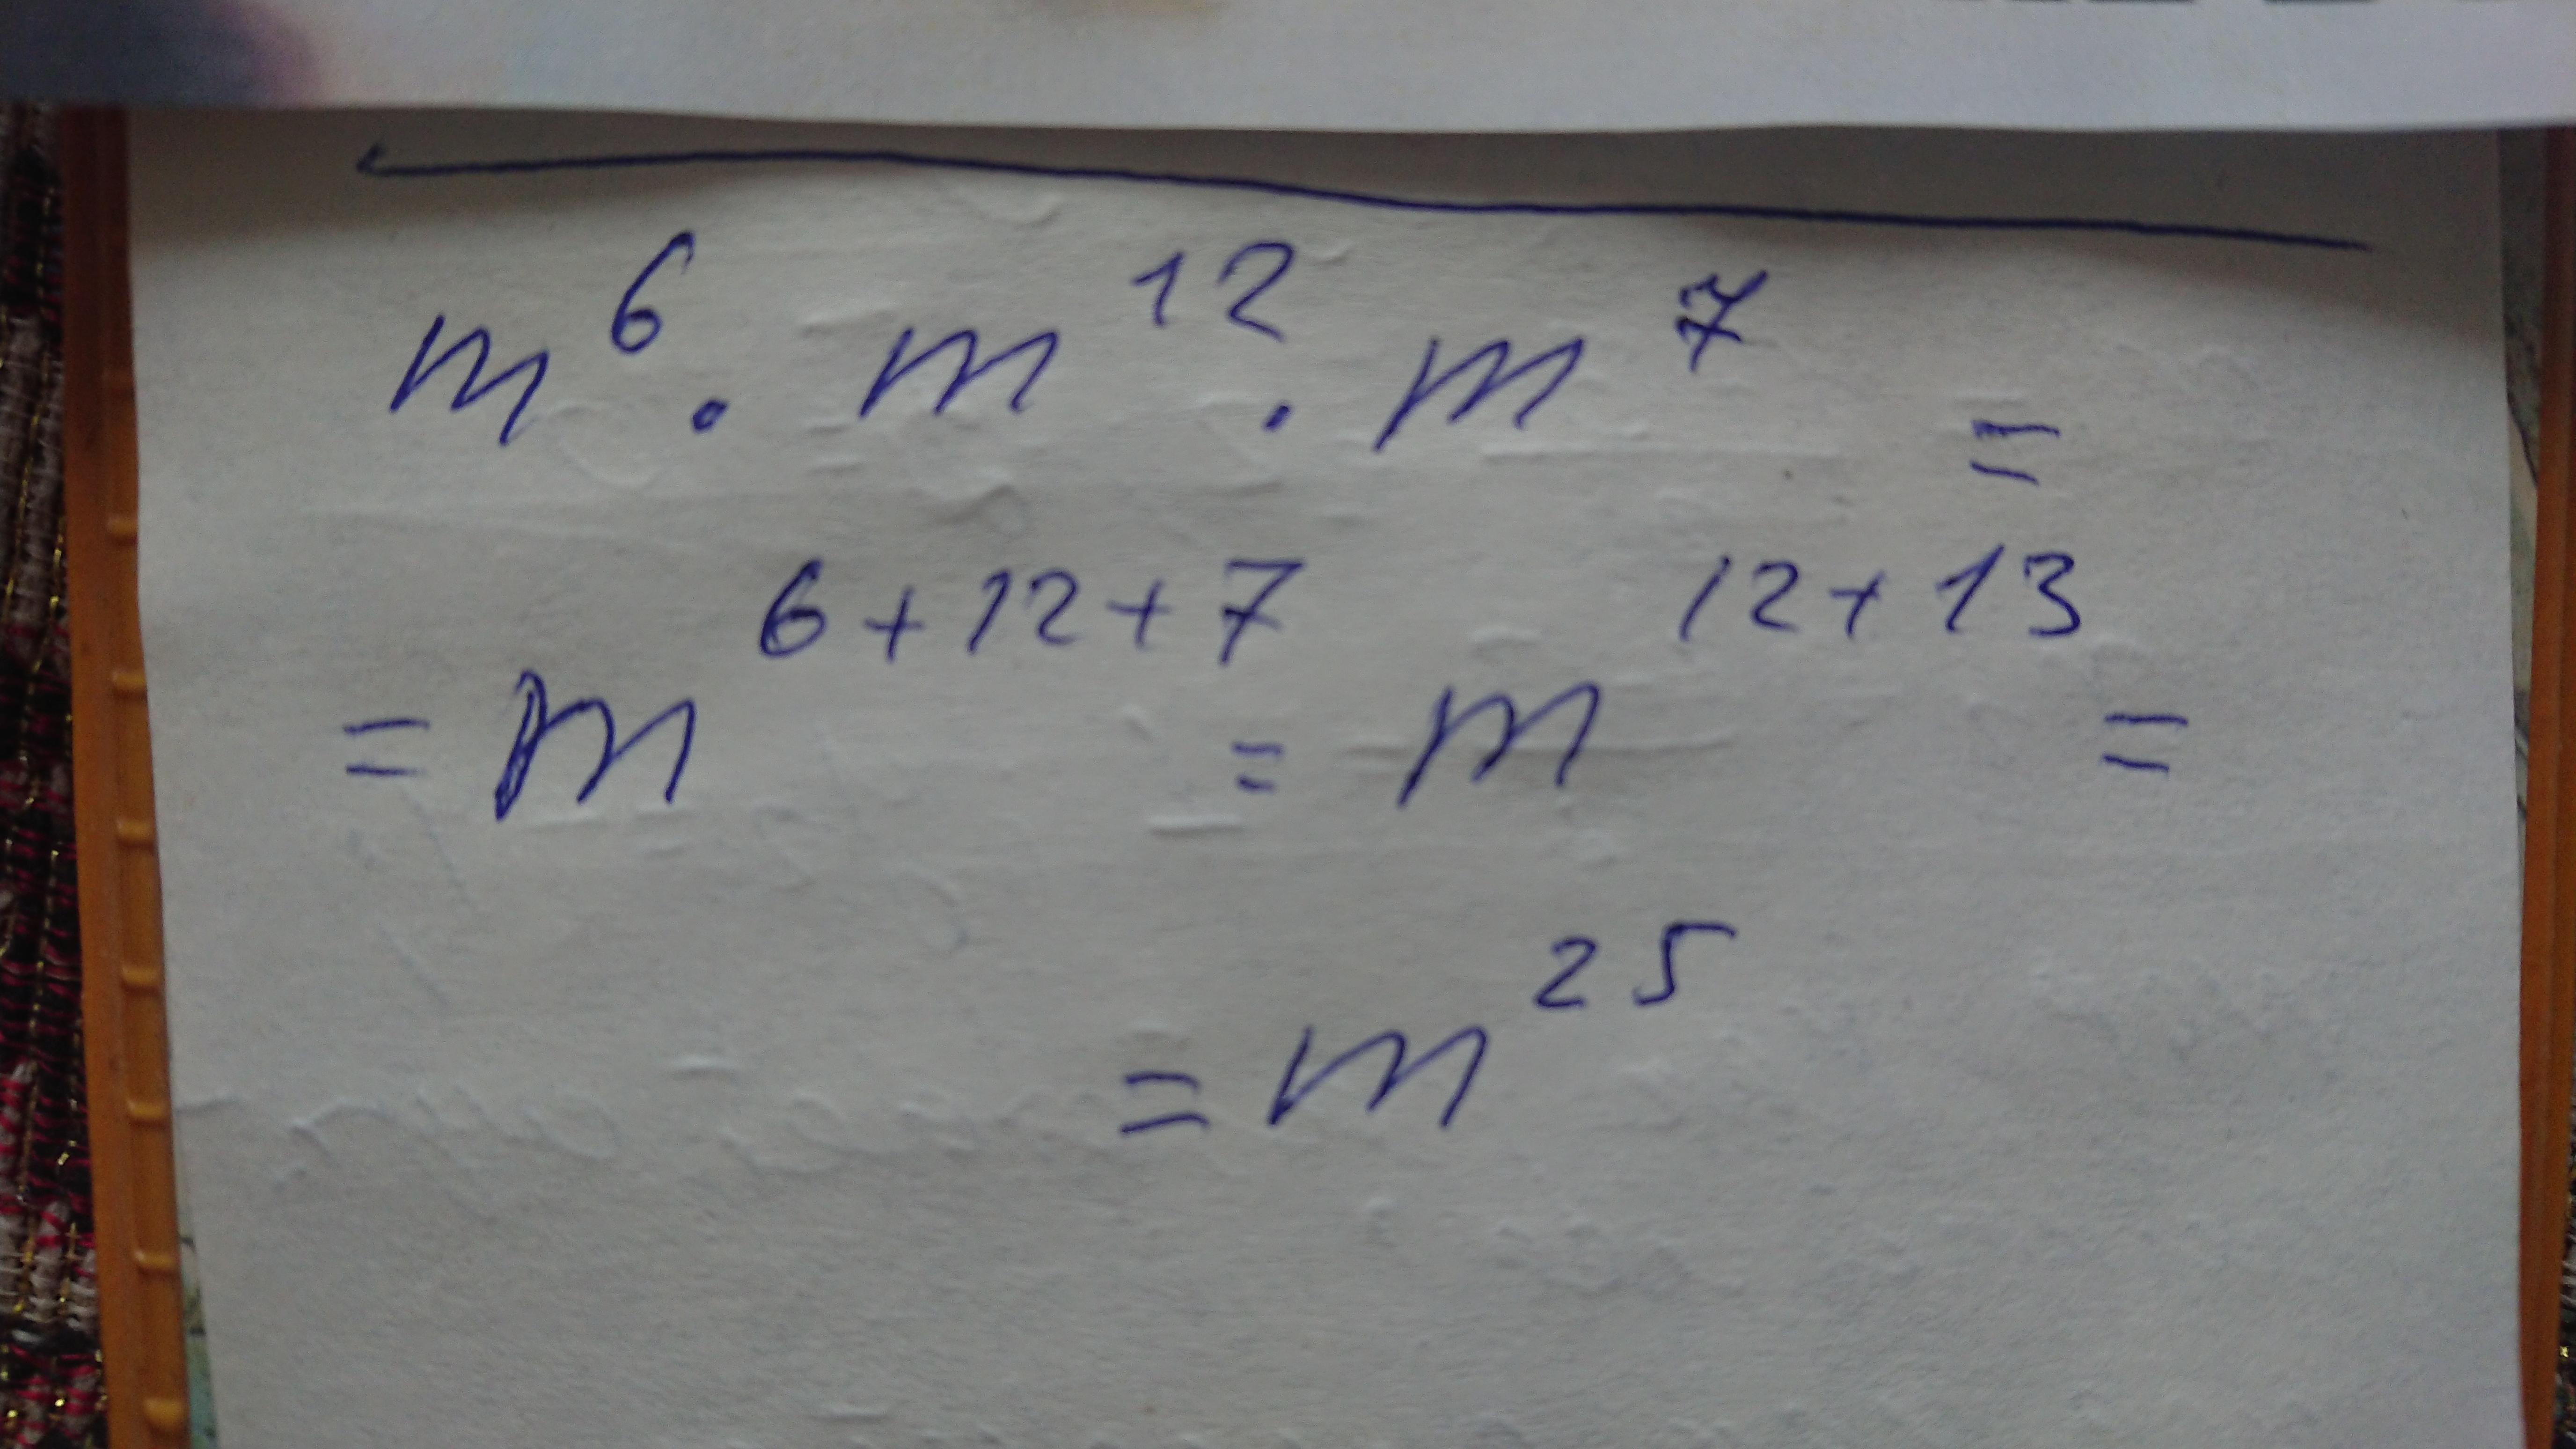 m⁶ · m¹² · m⁷ =
= m⁶⁺¹²⁺⁷ = m¹²⁺¹³ =
= m²⁵